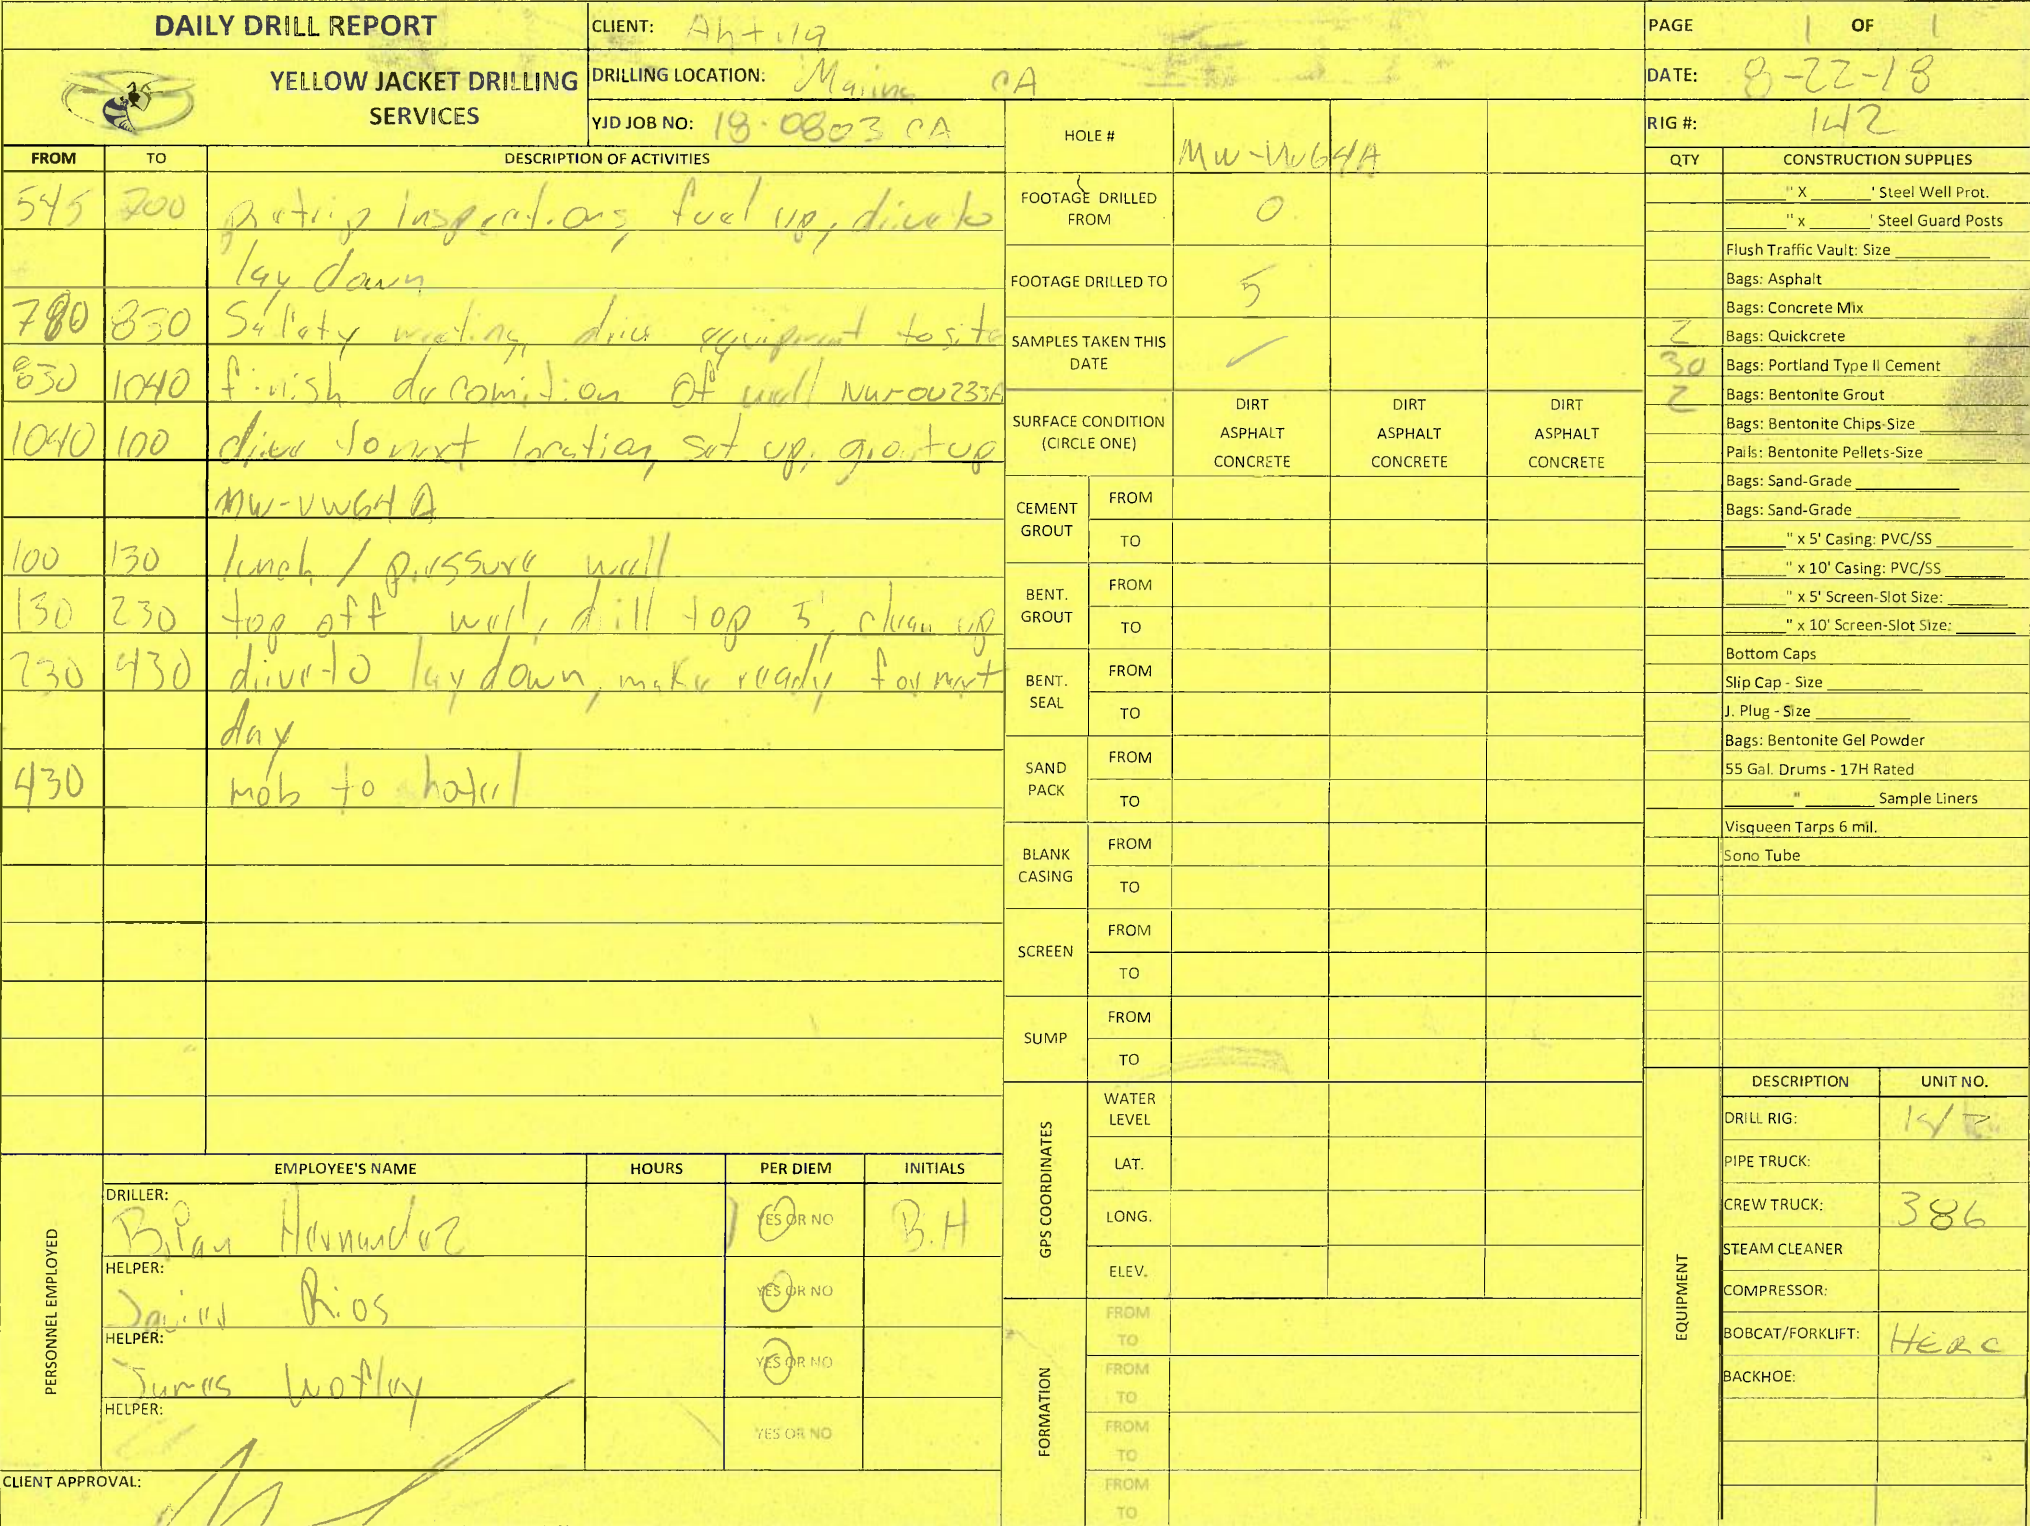 DAILY DRILL REPORT
CLIENT: Ahtila
PAGE 1 OF 1
YELLOW JACKET DRILLING SERVICES
DRILLING LOCATION: Marina CA
DATE: 8-22-18
YJD JOB NO: 18-0803 CA
RIG #: 142
HOLE # MW-VW64A
FROM TO DESCRIPTION OF ACTIVITIES
545 700 pretrip Inspections, fuel up, drive to
lay down
700 830 Safety meeting, drive equipment to site
830 1040 finish decomition of well
1040 100 drive to next location, set up, grout up
MW-VW64A
100 130 lunch / pressure well
130 230 top off well, drill top 5', clean up
230 430 drive to lay down, make ready for next
day
430 mob to hotel
FOOTAGE DRILLED FROM 0
FOOTAGE DRILLED TO 5
SAMPLES TAKEN THIS DATE
SURFACE CONDITION (CIRCLE ONE)
DIRT DIRT DIRT
ASPHALT ASPHALT ASPHALT
CONCRETE CONCRETE CONCRETE
CEMENT GROUT FROM
TO
BENT. GROUT FROM
TO
BENT. SEAL FROM
TO
SAND PACK FROM
TO
BLANK CASING FROM
TO
SCREEN FROM
TO
SUMP FROM
TO
GPS COORDINATES
WATER LEVEL
LAT.
LONG.
ELEV.
FORMATION
FROM
TO
FROM
TO
FROM
TO
FROM
TO
QTY CONSTRUCTION SUPPLIES
" X ' Steel Well Prot.
" x ' Steel Guard Posts
Flush Traffic Vault: Size
Bags: Asphalt
Bags: Concrete Mix
2 Bags: Quickcrete
30 Bags: Portland Type II Cement
2 Bags: Bentonite Grout
Bags: Bentonite Chips-Size
Pails: Bentonite Pellets-Size
Bags: Sand-Grade
Bags: Sand-Grade
" x 5' Casing: PVC/SS
" x 10' Casing: PVC/SS
" x 5' Screen-Slot Size:
" x 10' Screen-Slot Size:
Bottom Caps
Slip Cap - Size
J. Plug - Size
Bags: Bentonite Gel Powder
55 Gal. Drums - 17H Rated
" Sample Liners
Visqueen Tarps 6 mil.
Sono Tube
EQUIPMENT
DESCRIPTION UNIT NO.
DRILL RIG: 142
PIPE TRUCK:
CREW TRUCK: 386
STEAM CLEANER
COMPRESSOR:
BOBCAT/FORKLIFT: HERC
BACKHOE:
PERSONNEL EMPLOYED
EMPLOYEE'S NAME HOURS PER DIEM INITIALS
DRILLER: Brian Hernandez YES OR NO B.H
HELPER: Javier Rios YES OR NO
HELPER: James Wofley YES OR NO
HELPER: YES OR NO
CLIENT APPROVAL: